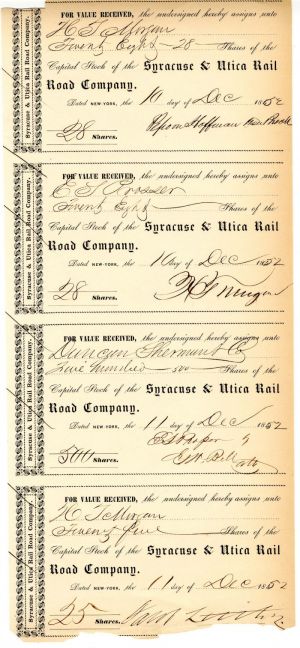 Syracuse & Utica Rail Road Company.
FOR VALUE RECEIVED, the undersigned hereby assigns unto
H T Morgan
Twenty Eight - 28 - Shares of the
Capital Stock of the Syracuse & Utica Rail
Road Company.
Dated NEW-YORK, the 10 day of Dec 1852
28 Shares.
Syracuse & Utica Rail Road Company.
FOR VALUE RECEIVED, the undersigned hereby assigns unto
E S
Twenty Eight Shares of the
Capital Stock of the Syracuse & Utica Rail
Road Company.
Dated NEW-YORK, the 10 day of Dec 1852
28 Shares. H T Morgan
Syracuse & Utica Rail Road Company.
FOR VALUE RECEIVED, the undersigned hereby assigns unto
Duncan Sherman & Co
Five Hundred - 500 - Shares of the
Capital Stock of the Syracuse & Utica Rail
Road Company.
Dated NEW-YORK, the 11 day of Dec 1852
500 Shares.
Syracuse & Utica Rail Road Company.
FOR VALUE RECEIVED, the undersigned hereby assigns unto
H T Morgan
Twenty five Shares of the
Capital Stock of the Syracuse & Utica Rail
Road Company.
Dated NEW-YORK, the 11 day of Dec 1852
25 Shares.